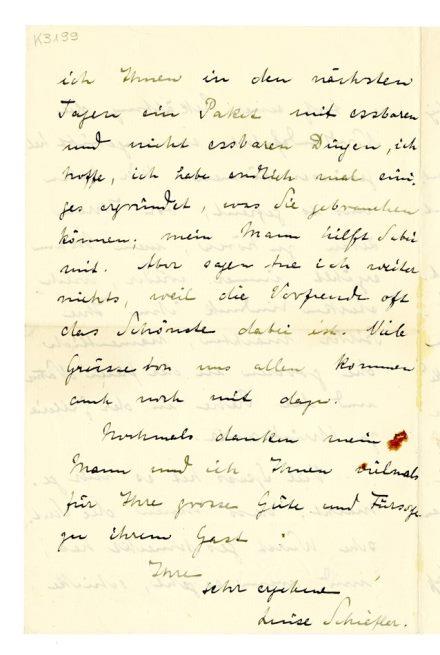 K3199
ich Ihnen in den nächsten
Tagen ein Paket mit essbaren
und nicht essbaren Dingen, ich
hoffe, ich habe endlich mal eini-
ges ergründet, was Sie gebrauchen
können; mein Mann hilft dabei
mit. Aber sagen tue ich weiter
nichts, weil die Vorfreude oft
das Schönste dabei ist. Viele
Grüsse von uns allen kommen
auch noch mit dazu.
Nochmals danken mein
Mann und ich Ihnen vielmals
für Ihre grosse Güte und Fürsorge
zu ihrem Gast
Ihre
sehr ergebene
Luise Schiefler.